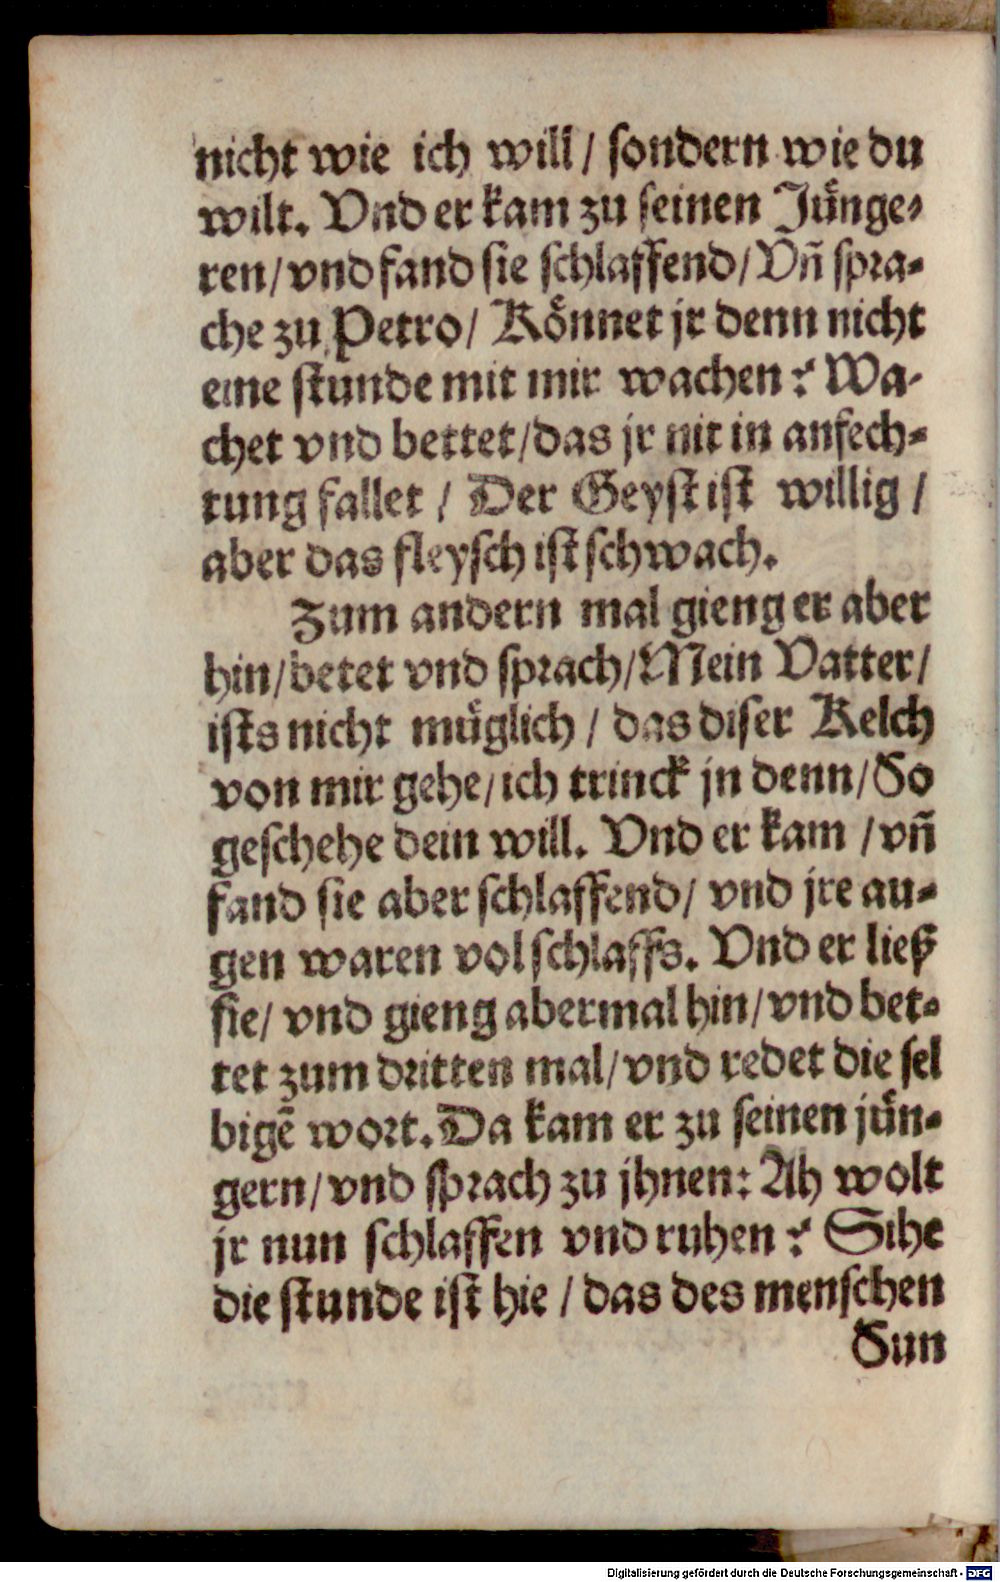 nicht wie ich will / sondern wie du
wilt. Vnd er kam zu seinen Jünge-
ren / vnd fand sie schlaffend / Vñ spra-
che zu Petro / Könnet jr denn nicht
eine stunde mit mir wachen? Wa-
chet vnd bettet / das jr nit in anfech-
tung fallet / Der Geyst ist willig /
aber das fleysch ist schwach.
Zum andern mal gieng er aber
hin / betet vnd sprach / Mein Vatter /
ists nicht müglich / das diser Kelch
von mir gehe / ich trinck jn denn / So
geschehe dein will. Vnd er kam / vñ
fand sie aber schlaffend / vnd jre au-
gen waren vol schlaffs. Vnd er ließ
sie / vnd gieng abermal hin / vnd bet-
tet zum dritten mal / vnd redet die sel
bigē wort. Da kam er zu seinen jün-
gern / vnd sprach zu jhnen: Ah wolt
jr nun schlaffen vnd ruhen? Sihe
die stunde ist hie / das des menschen
Sun
Digitalisierung gefördert durch die Deutsche Forschungsgemeinschaft - DFG